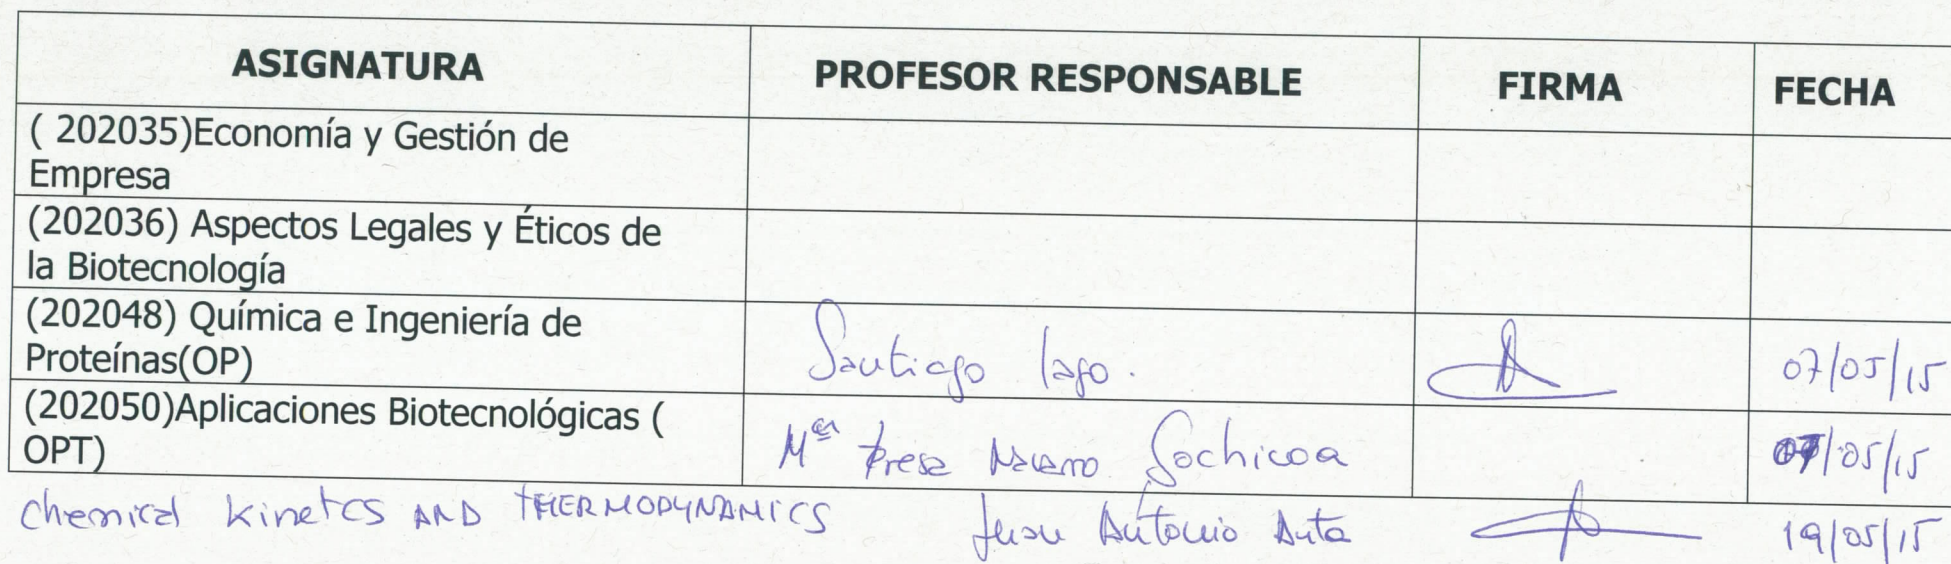 ASIGNATURA PROFESOR RESPONSABLE FIRMA FECHA
( 202035)Economía y Gestión de
Empresa
(202036) Aspectos Legales y Éticos de
la Biotecnología
(202048) Química e Ingeniería de
Proteínas(OP) Santiago Lago. 07/05/15
(202050)Aplicaciones Biotecnológicas (
OPT) Mª Navarro 07/05/15
Chemical Kinetcs AND THERMODYNAMICS Juan Antonio Anta 19/05/15